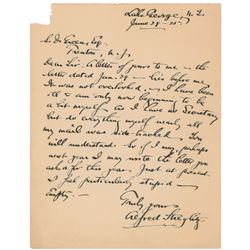 Lake George, N.Y.
June 29 - 25-
Trenton, N.J.
Dear Sir: A letter of yours to me - the
letter dated Jan. 29 - lies before me.
It was not overlooked. - I have been
ill & am only now beginning to be
a bit myself & as I have no Secretary
but do everything myself nearly all
my mail was side-tracked. You
will understand. So if I may, perhaps
next year I may write the letter you
asked for this year. Just at present
I feel particularly stupid -
Empty. -
Truly yours
Alfred Stieglitz